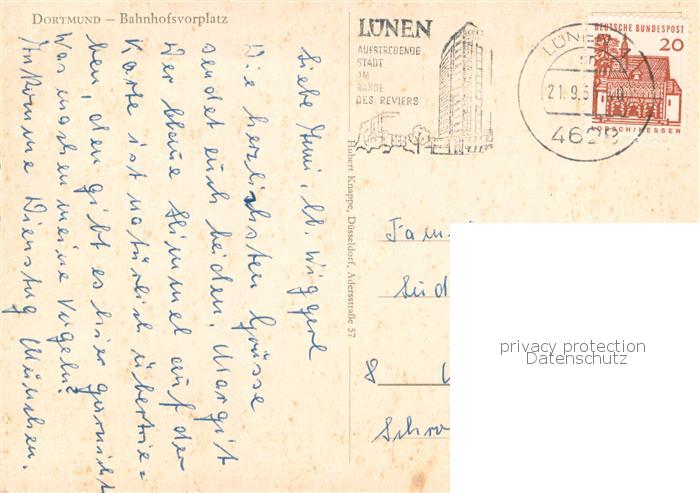 DORTMUND – Bahnhofsvorplatz
LÜNEN
AUFSTREBENDE
STADT
AM
RANDE
DES REVIERS
LÜNEN
21.9.6
462
DEUTSCHE BUNDESPOST
20
LORSCH/HESSEN
Hubert Knappe, Düsseldorf, Adersstraße 57
Liebe
Die herzlichsten Grüsse
sendet euch beiden, Margit
Der blaue Himmel auf der
Karte ist natürlich übertrie=
ben, den gibt es hier garnicht
Was machen meine Vögeln?
Ankomme Dienstag München.
Fam
Süd
8
Schro
privacy protection
Datenschutz